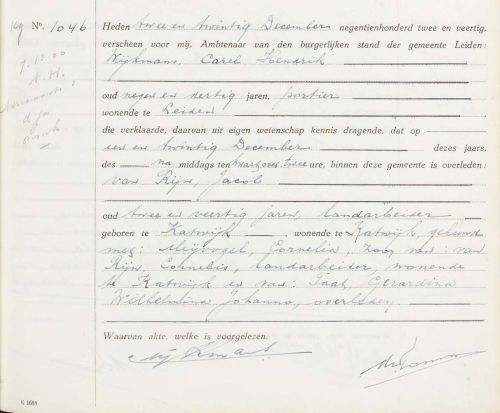 No. 1046
Heden twee en twintig December negentienhonderd twee en veertig,
verscheen voor mij, Ambtenaar van den burgerlijken stand der gemeente Leiden:
Wijkmans, Carel Hendrik
oud negen en dertig jaren, portier
wonende te Leiden
die verklaarde, daarvan uit eigen wetenschap kennis dragende, dat op
een en twintig December dezes jaars,
des na middags ten kwart over twee ure, binnen deze gemeente is overleden:
van Rijn, Jacob
oud twee en veertig jaren, landarbeider
geboren te Katwijk, wonende te Katwijk, gehuwd
met: Meijvogel, Cornelia, zoon van: van
Rijn, Cornelis, landarbeider, wonende
te Katwijk en van: Gerardina
Wilhelmina Johanna, overleden.
Waarvan akte, welke is voorgelezen.
K 1688